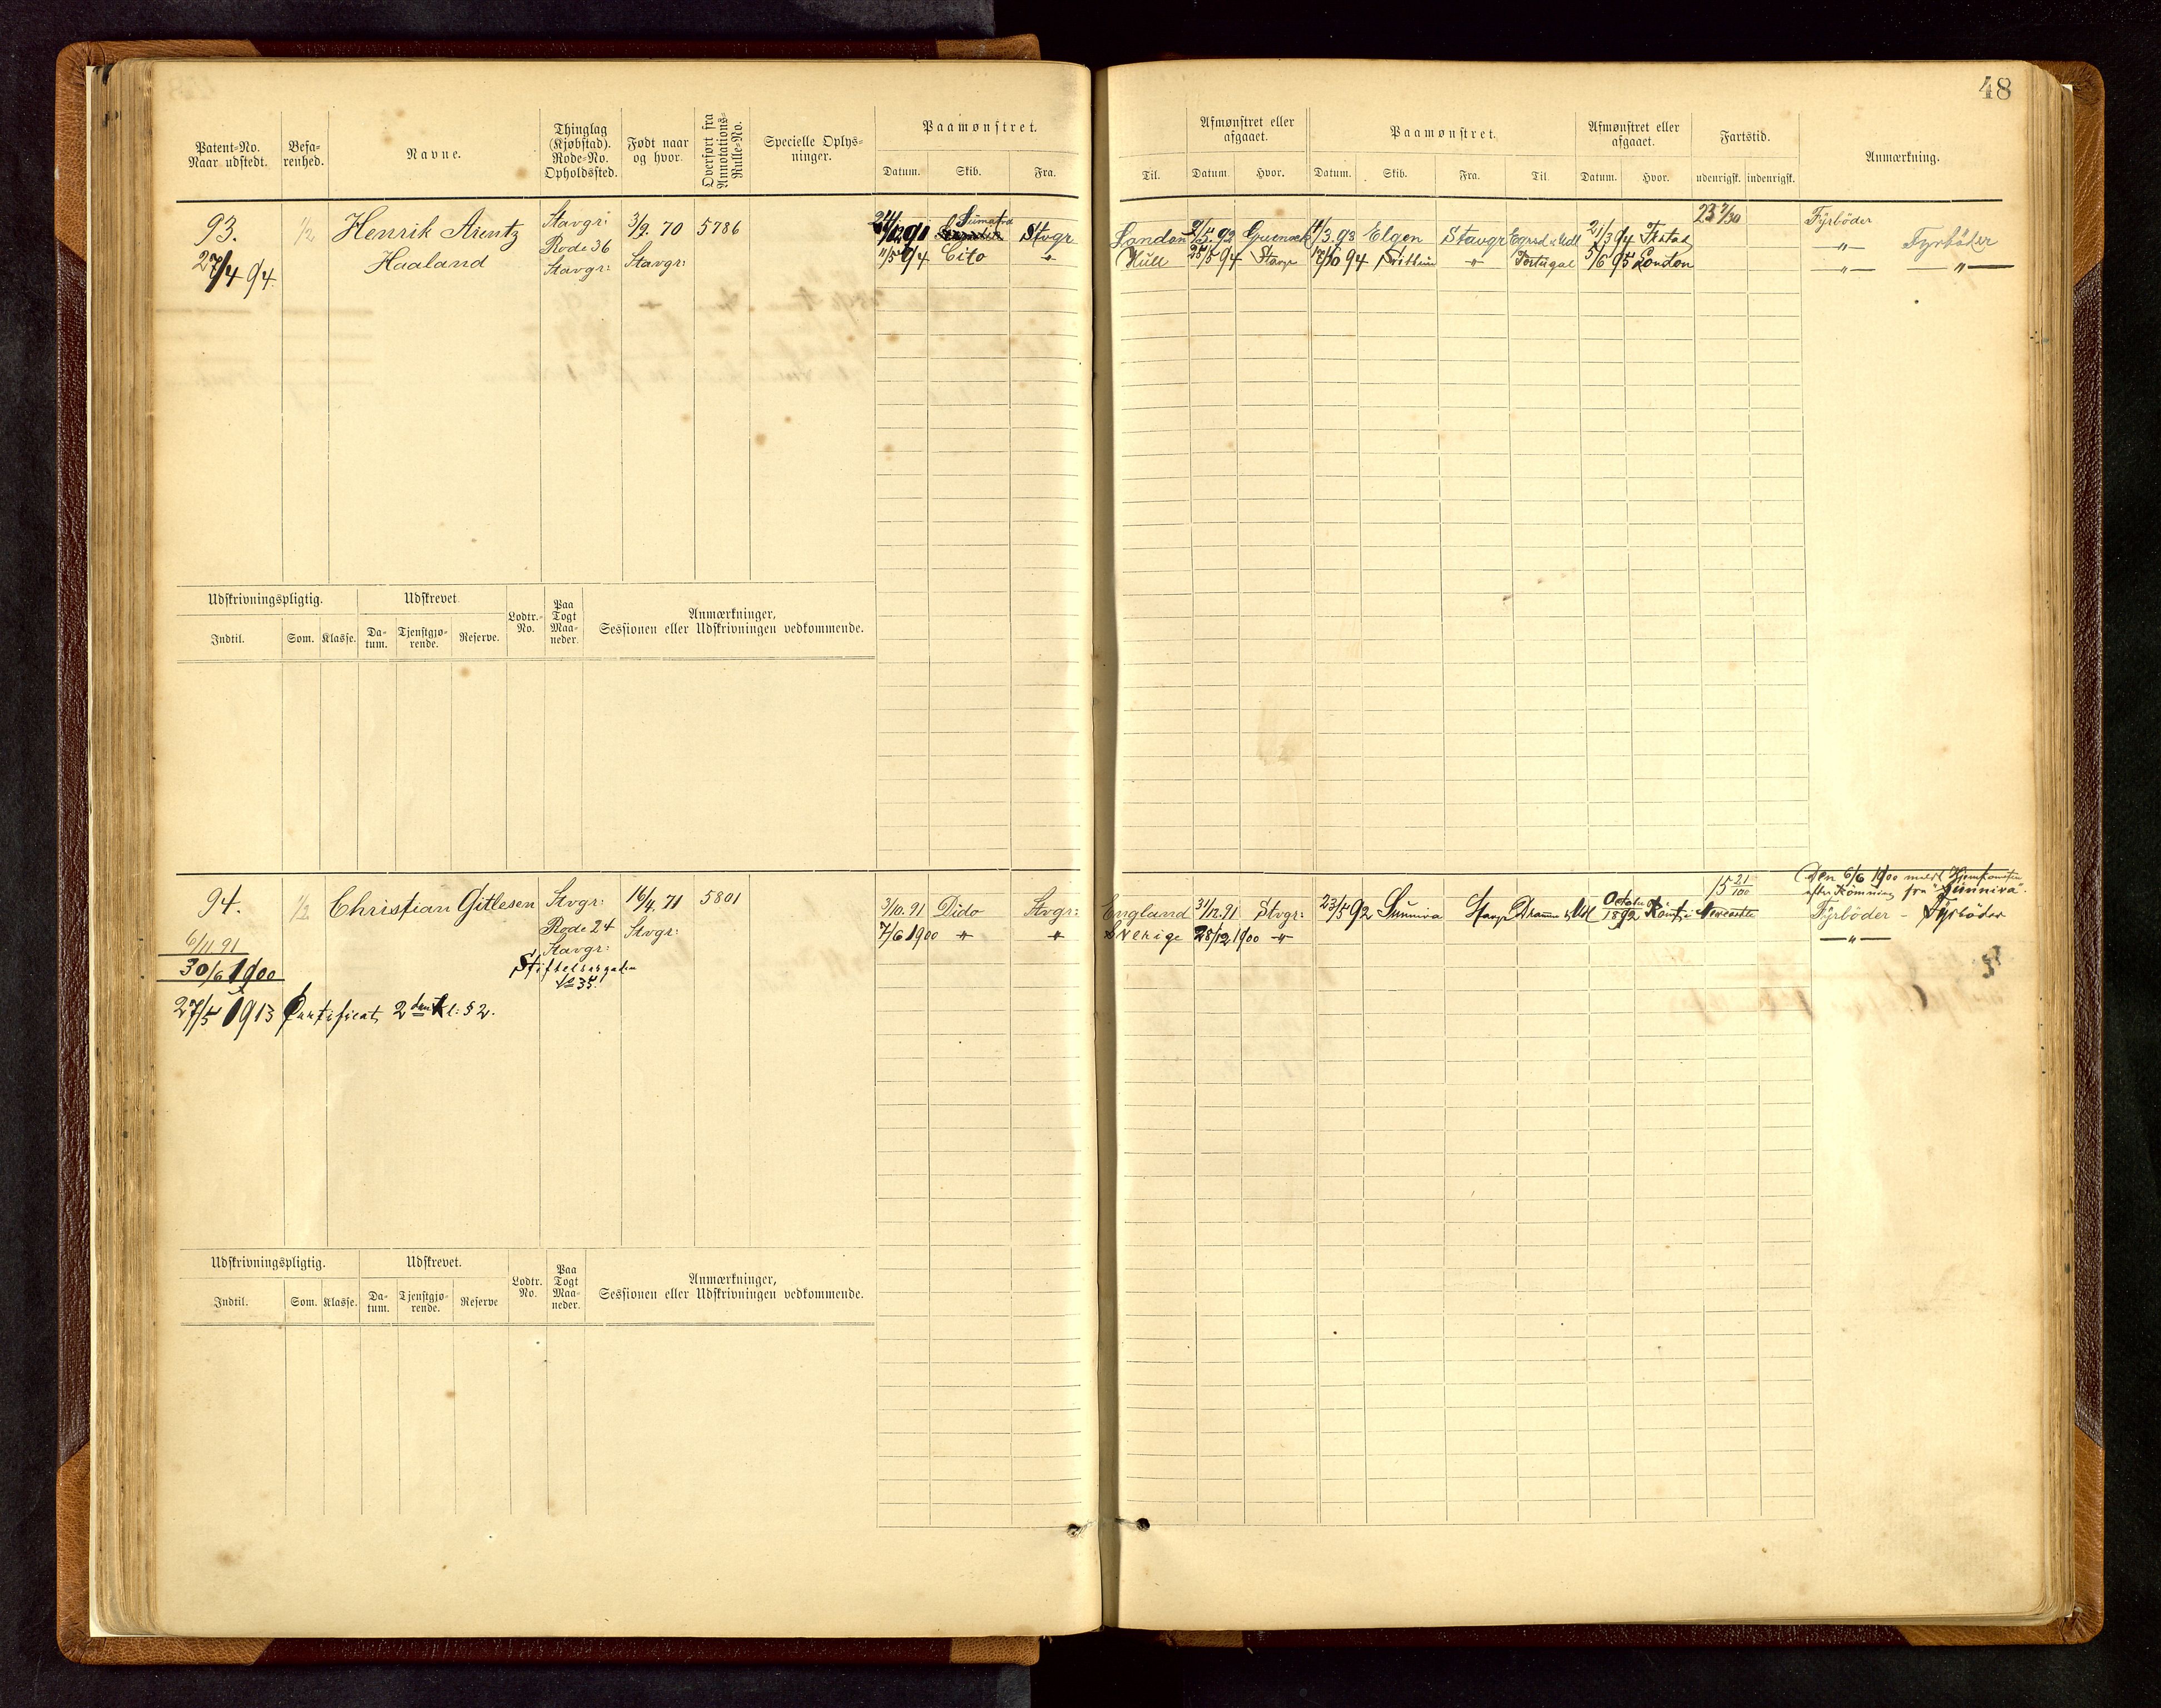 48
Patent-No. Naar udstedt.
Befa-renhed.
Navne.
Thinglag (Kjøbstad). Rode-No. Opholdssted.
Født naar og hvor.
Overført fra Annotations-Rulle-No.
Specielle Oplys-ninger.
Paamønstret.
Datum. Skib. Fra.
Til.
Afmønstret eller afgaaet.
Datum. Hvor.
Paamønstret.
Datum. Skib. Fra. Til.
Afmønstret eller afgaaet.
Datum. Hvor.
Fartstid.
udenrigsk. indenrigsk.
Anmærkning.
93. 1/2 Henrik Arentz Stavgr: 3/9. 70 5786 Sumatra 23 7/30 Fyrböder
Haaland Rode 36 Stavgr: Stvgr London 92 4/3. 93 Elgen Stavgr 21/3 94 Fyrböder
27/4 94 Stavgr: 11/5 94 Cito " Hull 25/5 94 Stavgr 94 " Portugal 5/6 95 London " "
Udskrivningspligtig. Udskrevet. Lodtr.-No. Paa Togt Maa-neder. Anmærkninger, Sessionen eller Udskrivningen vedkommende.
Indtil. Som. Klasse. Da-tum. Tjenstgjø-rende. Reserve.
94. 1/2 Christian Gitlesen Stvgr: 16/4. 71 5801 15 21/100 Den 6/6 1900 meldt Hjemkomsten
efter Römning fra "Sunniva".
Rode 24 Stvgr: 3/10. 91 Dido Stvgr: England 31/12. 91 Stvgr: 23/5 92 Sunniva Stavgr 1892 Römt i Newcastle Fyrböder - Fyrböder
6/11 91 Stavgr: 7/6 1900 " " Sverige 28/12 1900 " "
30/6 1900 Stiftelsesgaden
No 35.
27/5 1913 Certificat 2den Kl: § 2.
Udskrivningspligtig. Udskrevet. Lodtr. No. Paa Togt Maa-neder. Anmærkninger, Sessionen eller Udskrivningen vedkommende.
Indtil. Som. Klasse. Da-tum. Tjenstgjø-rende. Reserve